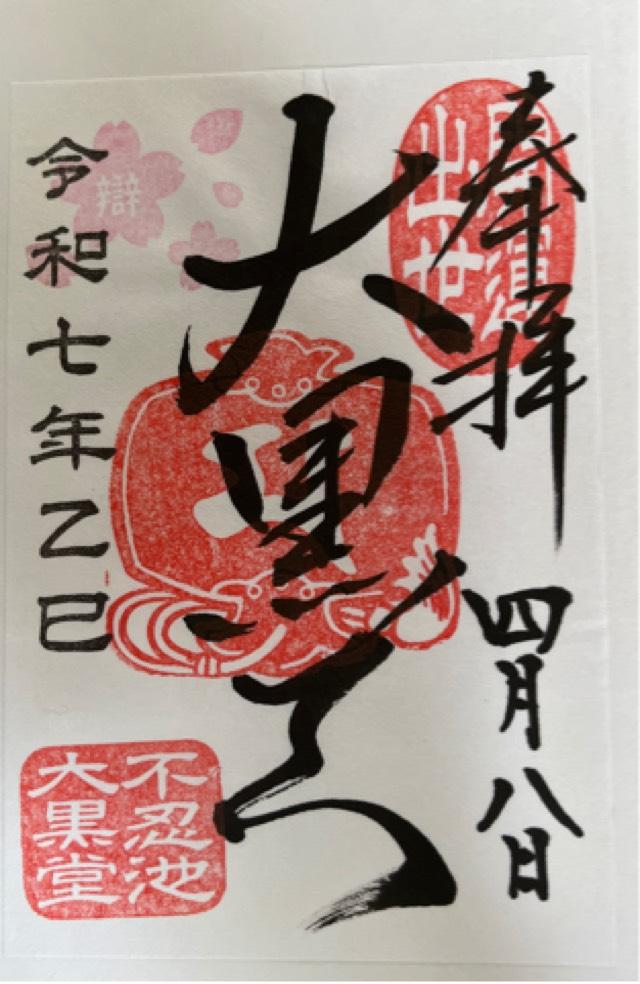 奉拝
四月八日
開運
出世
大黒天
辯
令和七年乙巳
不忍池
大黒堂